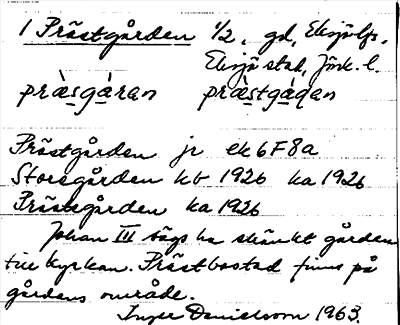 1 Prästgården 1/2, gd, Eksjö lfs.
Eksjö stad, Jönk. l.
pràsgáran pràstgáḍan
Prästgården jr ek 6F8a
Storegården kb 1926 ka 1926
Prästgården ka 1926
Johan III sägs ha skänkt gården
till kyrkan. Prästbostad finns på
gårdens område.
Inger Danielsson 1963.